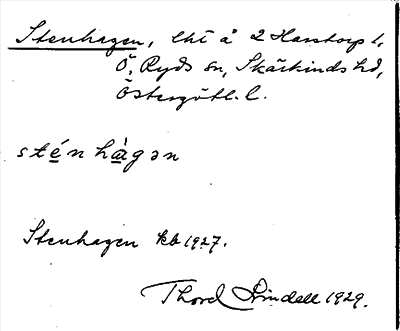 Stenhagen, lht å 2 Harstorp 1,
Ö. Ryds sn, Skärkinds hd,
Östergötl. l.
sté̱n hà̱gən
Stenhagen kb 1927.
Thord Lindell 1929.